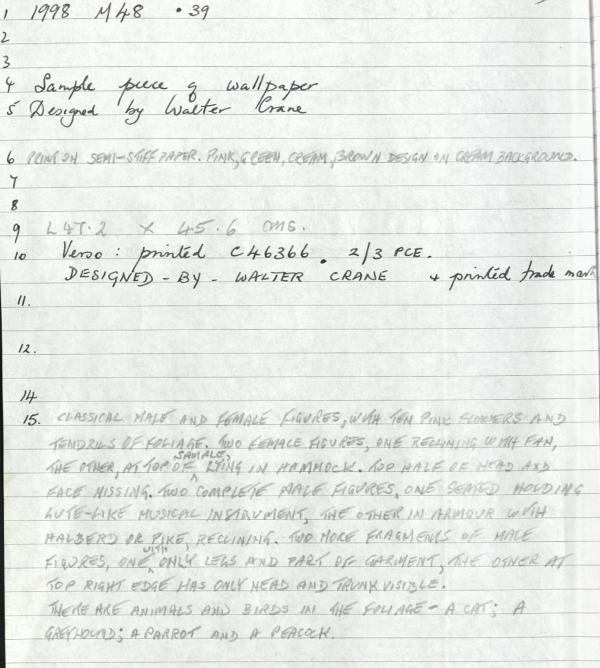 1 1998 M48 .39
2
3
4 Sample piece of wallpaper
5 Designed by Walter Crane
6 PRINT ON SEMI-STIFF PAPER. PINK, GREEN, CREAM, BROWN DESIGN ON CREAM BACKGROUND.
7
8
9 L47.2 X 45.6 cms.
10 Verso: printed C46366. 2/3 PCE.
DESIGNED-BY-WALTER CRANE + printed trade mark
11.
12.
14
15. CLASSICAL MALE AND FEMALE FIGURES, WITH TEN PINK FLOWERS AND
TENDRILS OF FOLIAGE. TWO FEMALE FIGURES, ONE RECLINING WITH FAN,
THE OTHER, AT TOP OF SAMPLE, LYING IN HAMMOCK. TOP HALF OF HEAD AND
FACE MISSING. TWO COMPLETE MALE FIGURES, ONE SEATED HOLDING
LUTE-LIKE MUSICAL INSTRUMENT, THE OTHER IN ARMOUR WITH
HALBERD OR PIKE, RECLINING. TWO MORE FRAGMENTS OF MALE
FIGURES, ONE WITH ONLY LEGS AND PART OF GARMENT, THE OTHER AT
TOP RIGHT EDGE HAS ONLY HEAD AND TRUNK VISIBLE.
THERE ARE ANIMALS AND BIRDS IN THE FOLIAGE - A CAT; A
GREYHOUND; A PARROT AND A PEACOCK.